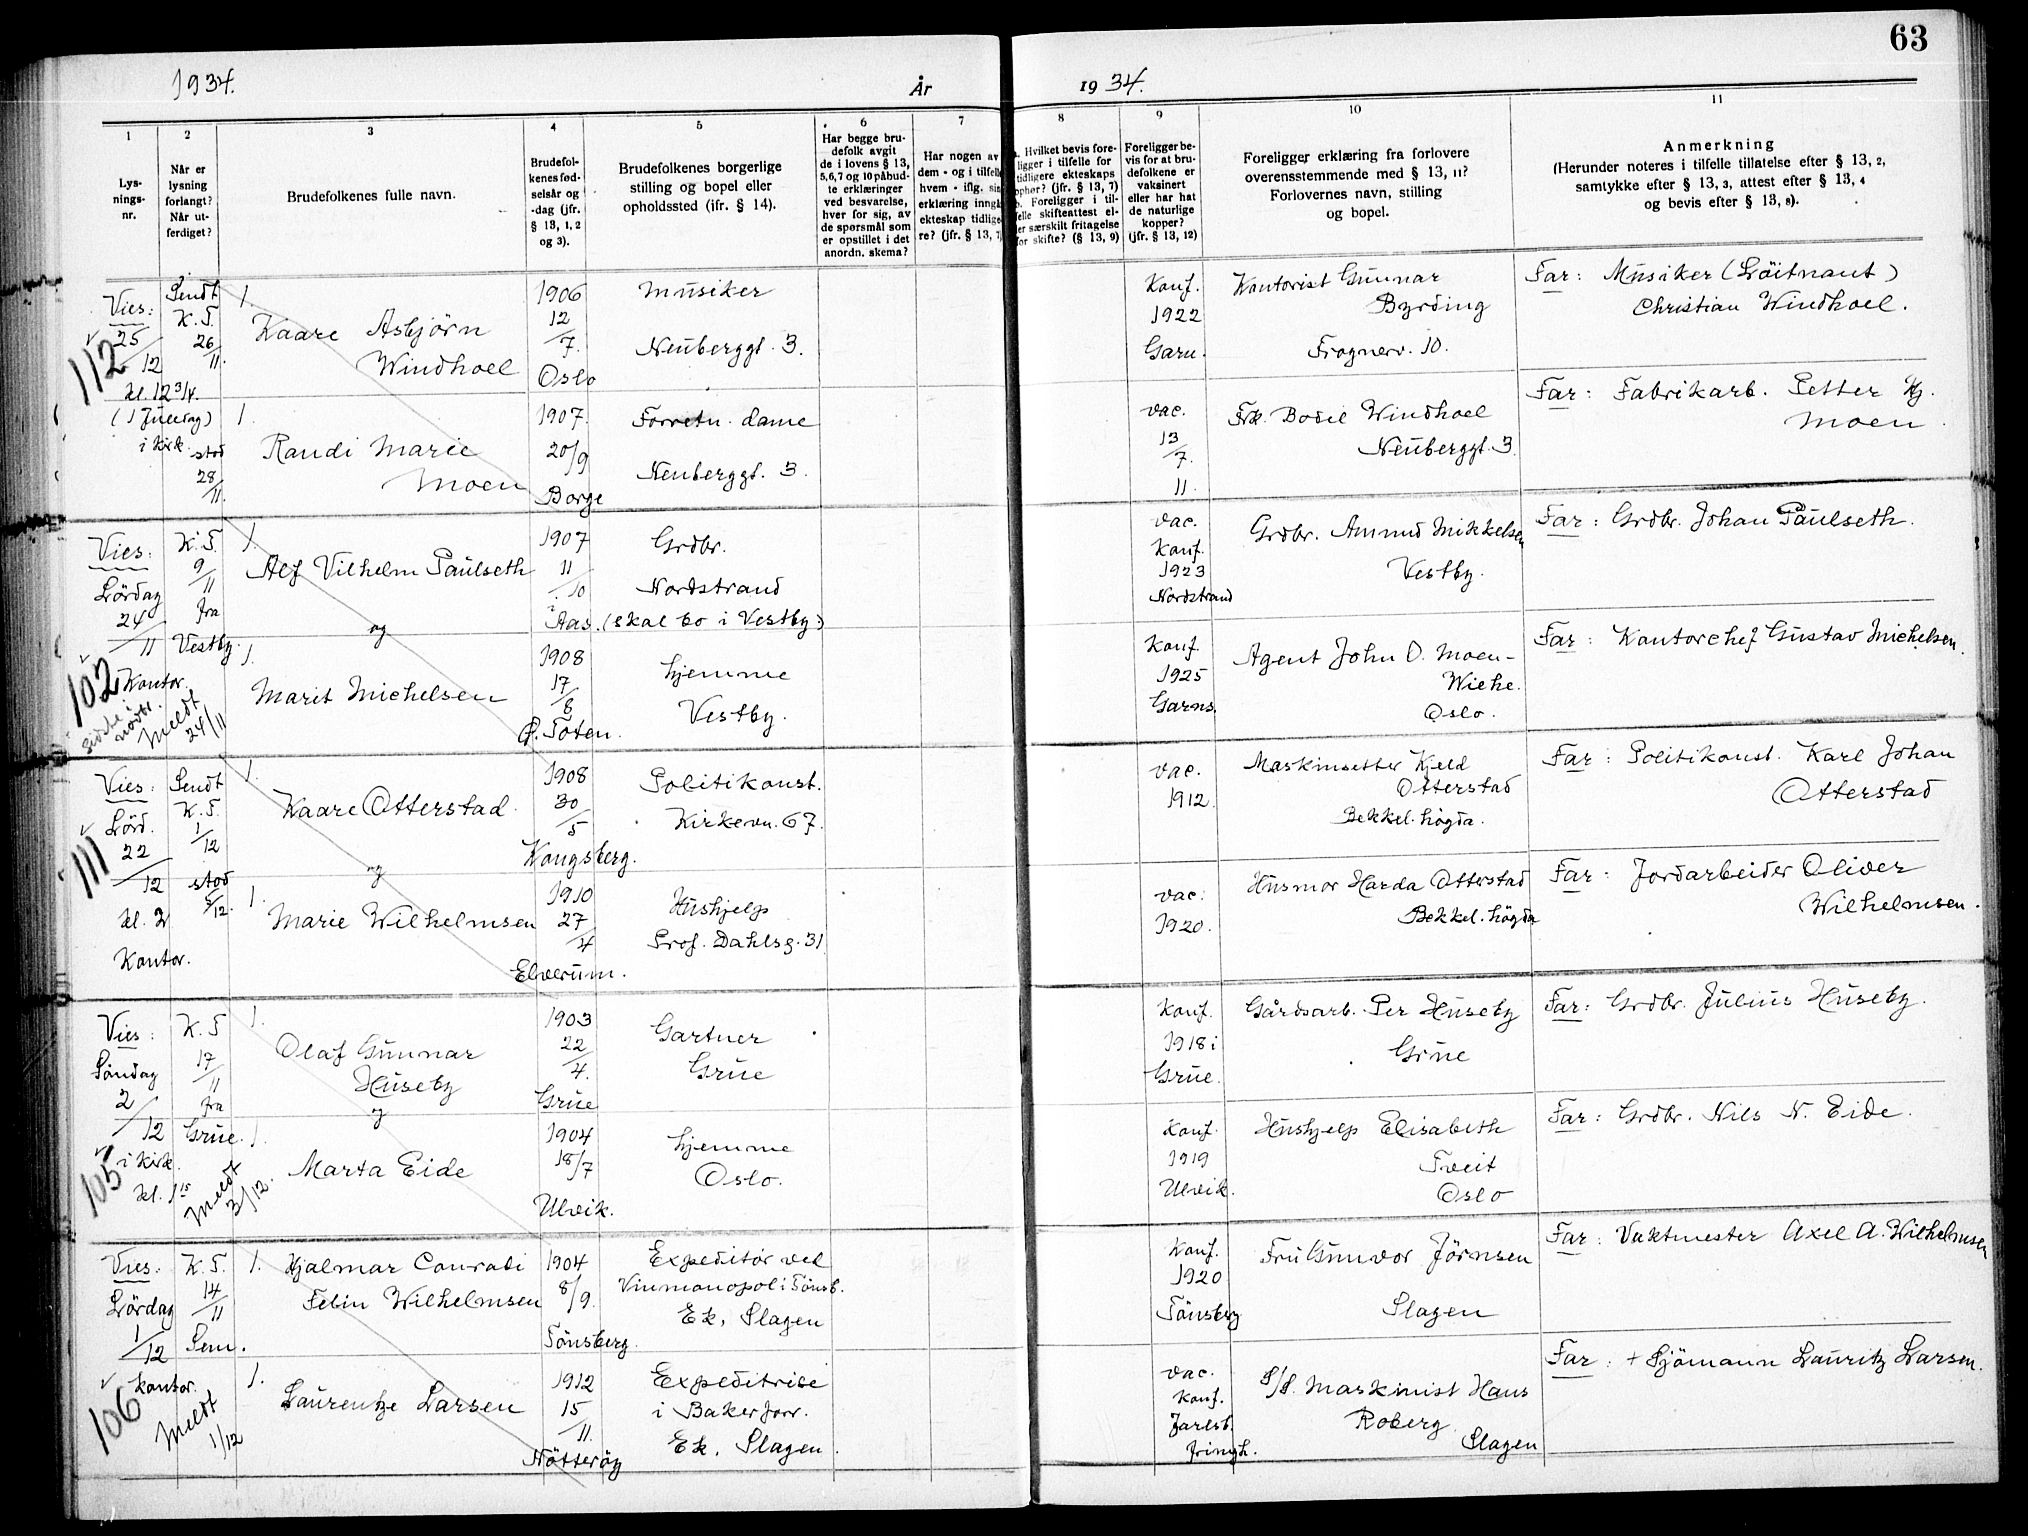 63
1934.
År
1934.
1
2
3
4
5
6
7
8
9
10
11
Lys-
nings-
nr.
Når er
lysning
forlangt?
Når ut-
ferdiget?
Brudefolkenes fulle navn.
Brudefol-
kenes fød-
selsår og
-dag (jfr.
§ 13, 1, 2
og 3).
Brudefolkenes borgerlige
stilling og bopel eller
opholdssted (ifr. § 14).
Har begge bru-
defolk avgit
de i lovens § 13,
5,6,7 og 10 påbud-
te erklæringer
ved besvarelse,
hver for sig, av
de spørsmål som
er opstillet i det
anordn. skema?
Har nogen av
dem - og i tilfelle
hvem - iflg. sin
erklæring inngå
ekteskap tidlige
re? (jfr. § 13, 7
Hvilket bevis fore-
ligger i tilfelle for
tidligere ekteskaps
ophør? (jfr. § 13, 7)
b. Foreligger i til-
felle skifteattest el-
ler særskilt fritagelse
for skifte? (§ 13, 9)
Foreligger be-
vis for at bru-
defolkene er
vaksinert
eller har hat
de naturlige
kopper?
(jfr. § 13, 12)
Foreligger erklæring fra forlovere
overensstemmende med § 13, 11?
Forlovernes navn, stilling
og bopel.
Anmerkning
(Herunder noteres i tilfelle tillatelse efter § 13, 2,
samtykke efter § 13, 3, attest efter § 13, 4
og bevis efter § 13, 8).
112
Vies:
25/12
kl. 12 3/4.
(1 Juledag)
i Kirk.
Sendt
K. T.
26/11.
stod
28/11.
1.
Kaare Asbjörn
Windhoel
1906
12/7.
Oslo
Musiker
Neuberggt. 3.
Konf.
1922
Garn.
Kontorist Gunnar
Byrding
Frognerv. 10.
Far: Musiker (Löitnant)
Christian Windhoel.
1.
Randi Marie
Moen
1907.
20/9
Borge
Forretn. dame
Neuberggt. 3.
vac.
13/7.
11.
Frk. Bodil Windhoel
Neuberggt. 3.
Far: Fabrikarb. Petter Hj.
Moen.
102
Vies:
Lördag
24/11
Kontor.
Meldt
24/11
K. T.
9/11
fra
Vestby.
1.
Alf Vilhelm Paulseth
og
1907
11/10
i Aas.
Grdbr.
Nordstrand
(skal bo i Vestby)
vac.
Konf.
1923
Nordstrand
Grdbr. Amund Mikkelsen
Vestby.
Far: Grdbr. Johan Paulseth.
1.
Marit Michelsen
1908
17/8
Ø. Toten.
hjemme
Vestby.
Konf.
1925
Garns.
Agent John O. Moen-
Wiehe.
Oslo.
Far: Kontorchef Gustav Michelsen.
111
Vies:
Lörd.
22/12
kl. 2
Kontor.
Sendt
K. T.
1/12
stod
5/12.
1.
Kaare Otterstad.
og
1908
30/5
Kongsberg.
Politikonst.
Kirkevn. 67.
vac.
1912.
Maskinsetter Kjeld
Otterstad
Bekkel. högda.
Far: Politikonst. Karl Johan
Otterstad
1.
Marie Wilhelmsen
1910
27/4
Elverum.
Hushjelp
Prof. Dahlsg. 31
vac.
1920.
Husmor Harda Otterstad
Bekkel. högda
Far: Jordarbeider Oliver
Wilhelmsen.
105
Vies:
Söndag
2/12
i Kirk.
kl. 1 15
Meldt
3/12.
K. T
17/11
fra
Grue.
1.
Olaf Gunnar
Huseby
og
1903
22/4.
Grue
Gartner
Grue
Konf.
1918 i
Grue.
Gårdsarb. Per Huseby
Grue
Far: Grdbr. Julius Huseby.
1.
Marta Eide
1904
18/7
Ulvik.
hjemme
Oslo.
Konf.
1919
Ulvik.
Hushjelp Elisabeth
Tveit
Oslo
Far: Grdbr. Nils N. Eide.
106
Vies:
Lördag
1/12
Kontor.
Meldt
1/12
K. T.
14/11
Sem.
1.
Hjalmar Conradi
Felin Wilhelmsen
1904
8/9.
Tönsberg.
Expeditör ved
Vinmonopol i Tönsb.
Ek, Slagen
Konf.
1920
Tönsberg
Fru Gunvor Jörnsen
Slagen
Far: Vaktmester Axel A. Wilhelmsen
1.
Laurentze Larsen
1912
15/11.
Nötteröy
Expeditrise
i Bakerforr.
Ek, Slagen.
vac.
Konf.
Jarlsb.
S/S. Maskinist Hans
Roberg
Slagen
Far: + Sjömann Lauritz Larsen.